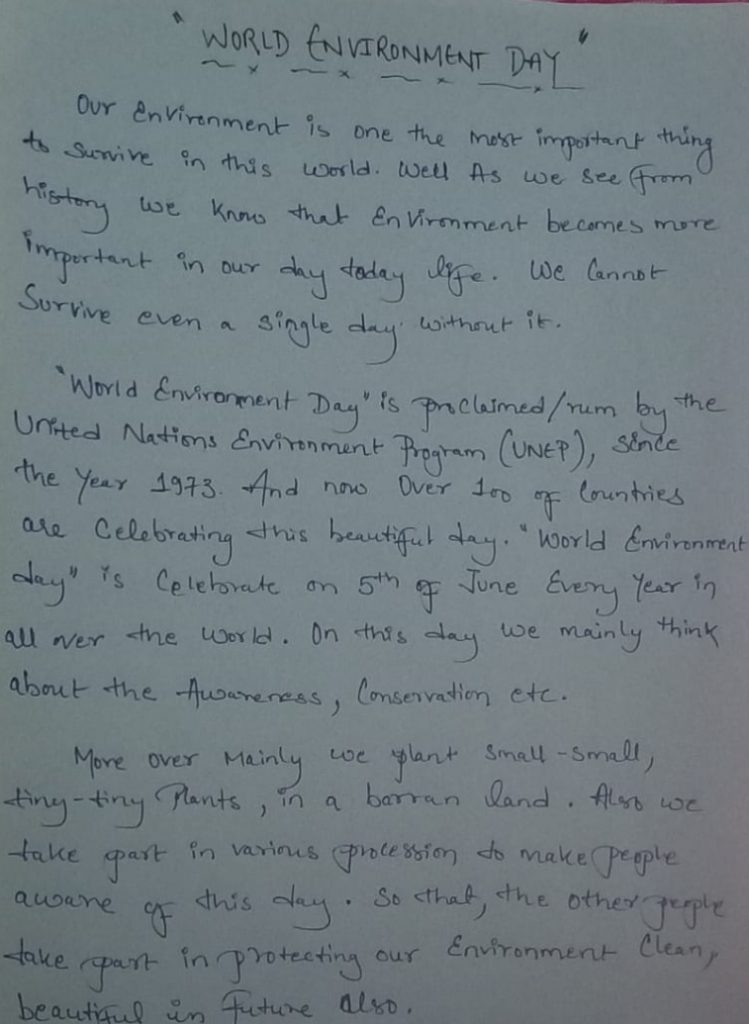 "WORLD ENVIRONMENT DAY"
Our Environment is one the most important thing
to Survive in this world. Well As we see from
history we know that Environment becomes more
important in our day today life. We Cannot
Survive even a single day without it.
"World Environment Day" is proclaimed/rum by the
United Nations Environment Program (UNEP), Since
the Year 1973. And now Over 100 of Countries
are Celebrating this beautiful day. "World Environment
day" is Celebrate on 5th of June Every Year in
all over the world. On this day we mainly think
about the Awareness, Conservation etc.
More over Mainly we plant Small-Small,
tiny-tiny Plants, in a barran land. Also we
take part in various procession to make people
aware of this day. So that, the other people
take part in protecting our Environment Clean,
beautiful in future also.